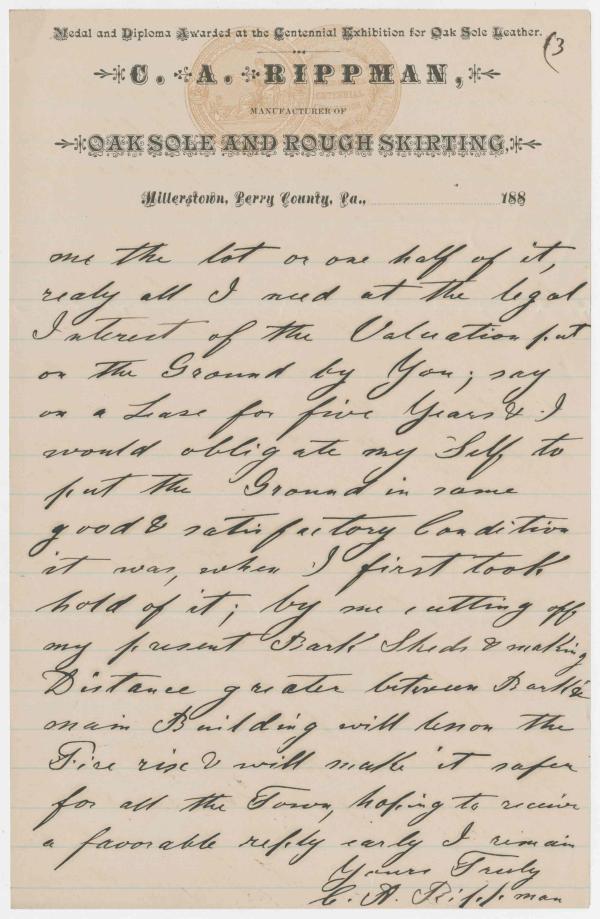 Medal and Diploma Awarded at the Centennial Exhibition for Oak Sole Leather.
(3
C. A. RIPPMAN,
MANUFACTURER OF
OAK SOLE AND ROUGH SKIRTING,
Millerstown, Perry County, Pa., 188
me the lot or one half of it,
realy all I need at the legal
Interest of the Valuation put
on the Ground by You; say
on a Lease for five Years & I
would obligate my Self to
put the Ground in same
good & satisfactory Condition
it was, when I first took
hold of it; by me cutting off
my present Bark Sheds & making
Distance greater between Bark &
main Building will lesson the
Fire risk & will make it safer
for all the Town, hoping to receive
a favorable reply early I remain
Yours Truly
C. A. Rippman